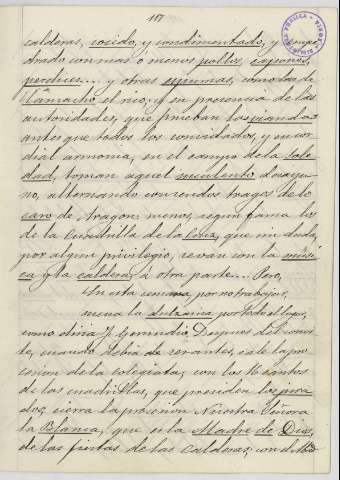 187
calderas, cocido, y condimentado, y
drado con mas o menos pollos, capones,
perdices... y otras espumas, como las de
Camacho el rico, y en presencia de las
autoridades, que prueban las viandas
antes que todos los convidados, y en cor
dial armonia, en el campo de la Sole
dad, toman aquel suculento desayu
no, alternando con sendos tragos de lo
caro de Aragon: menos, segun fama los
de la Cuadrilla de la Cruz, que sin duda,
por algun privilegio, se van con la músi
ca y la caldera, á otra parte... Pero,
En esta semana, por no trabajar,
suena la dulzaina por todo el lugar,
como diria Fr. Gerundio. Despues del
te, cuando debia de ser antes, sale la pro
cesion de la colegiata, con los 16 santos
de las cuadrillas, que presiden los jura
dos; cierra la procesion Nuestra Señora
la Blanca, que es la Madre de Dios,
de las fiestas de las Calderas; con el